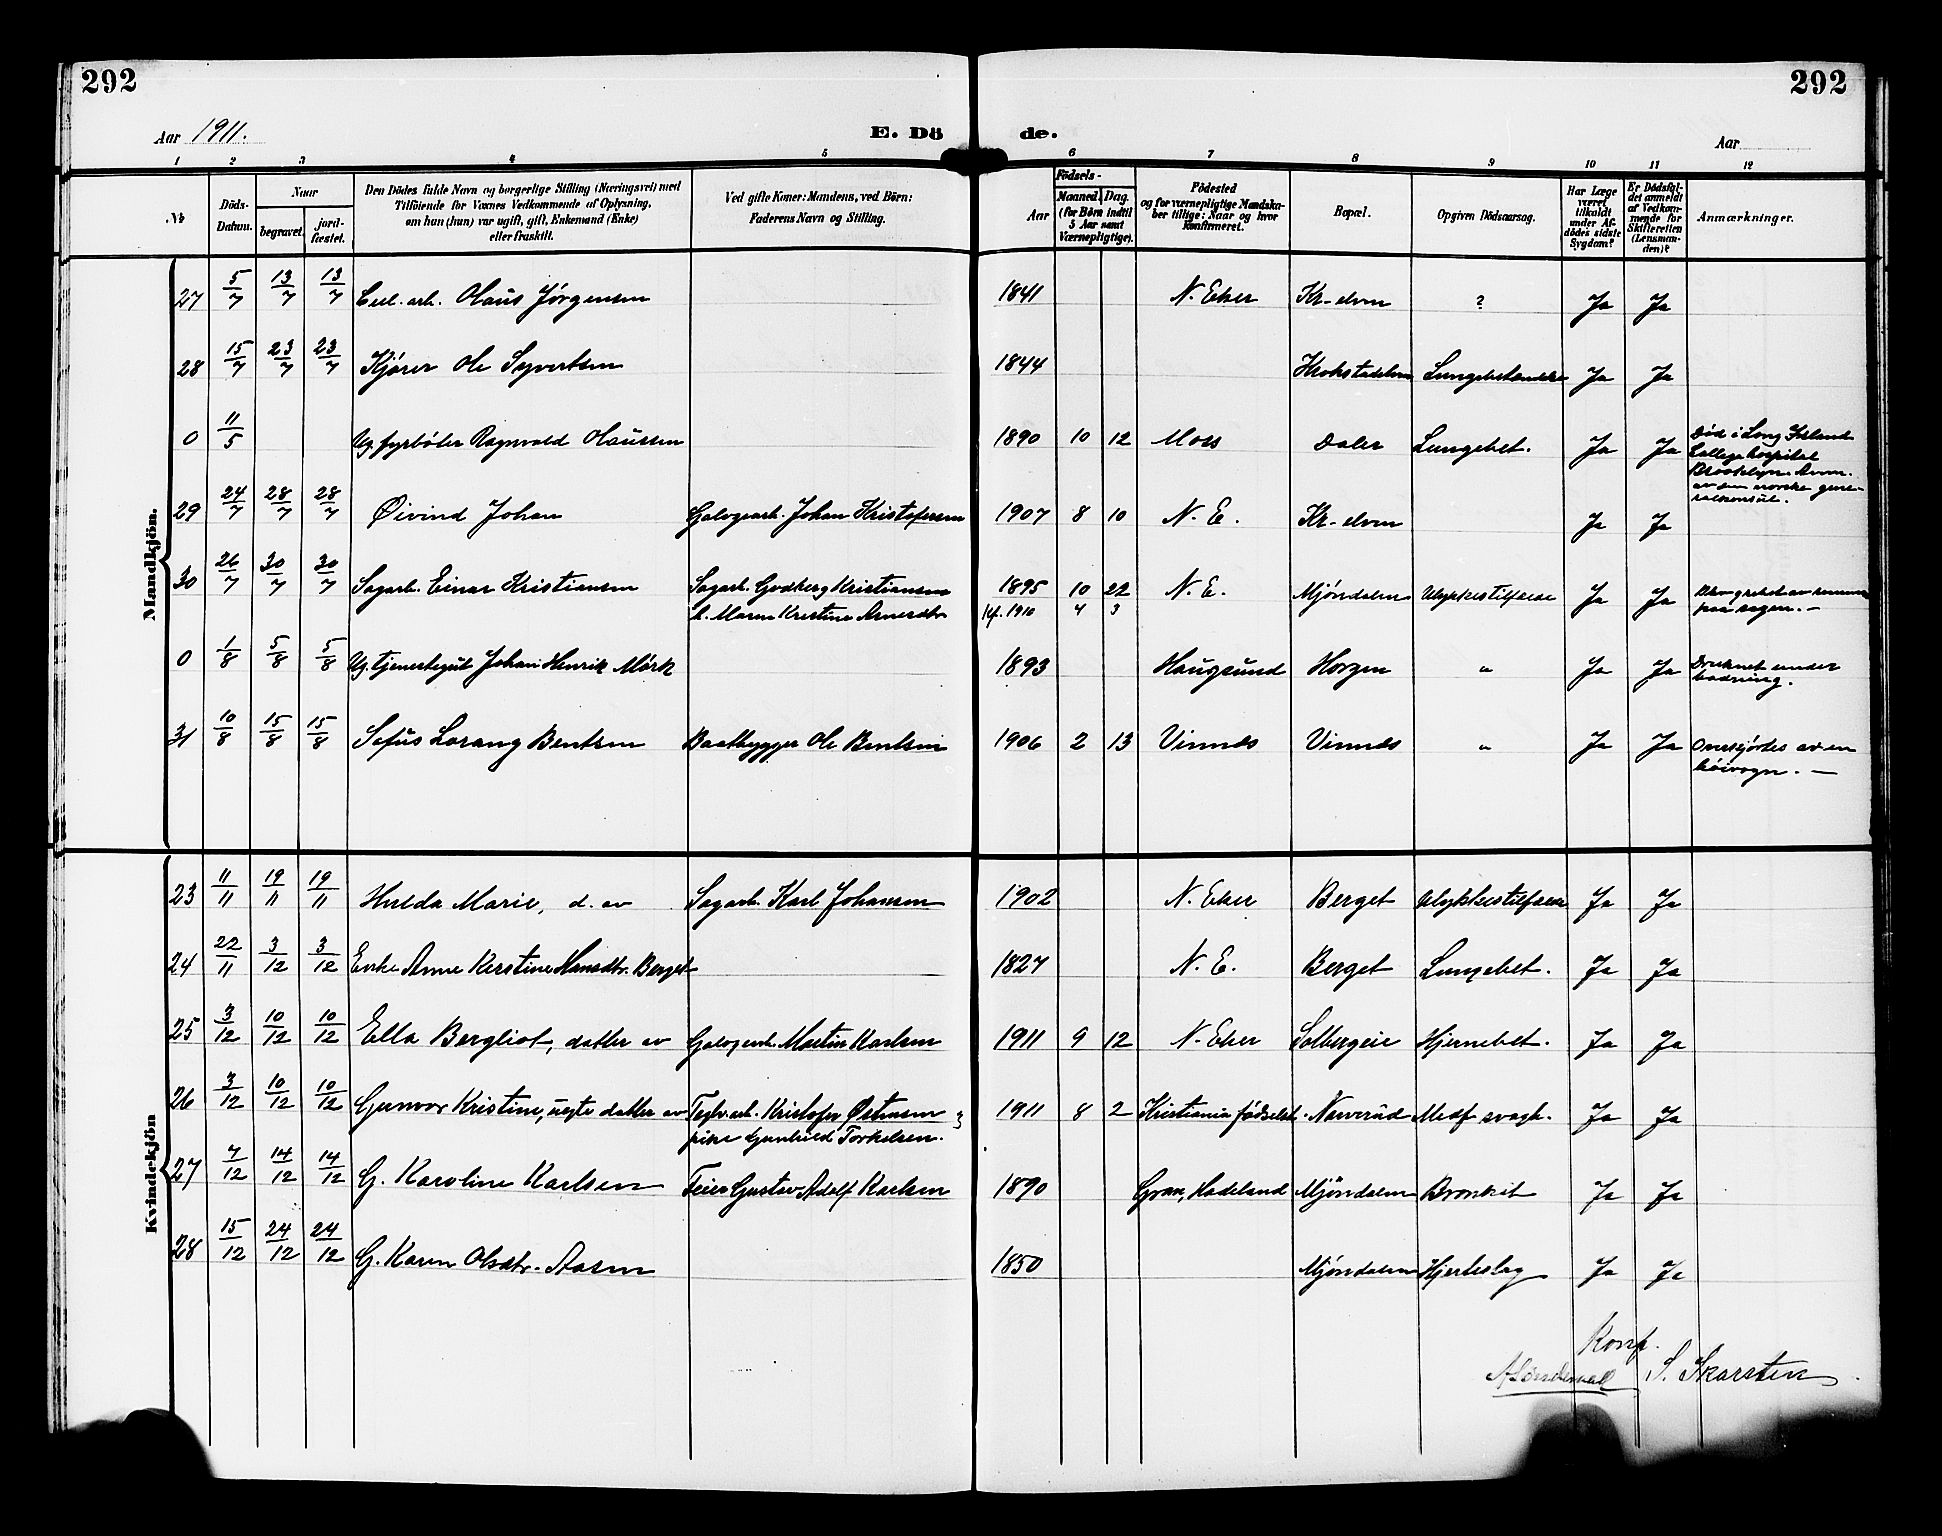 292
292
Aar 1911.
E. Dö de.
Aar
1 2 3 4 5 6 7 8 9 10 11 12
No
Döds-Datum.
Naar
begravet.
jord-fæstet.
Den Dödes fulde Navn og borgerlige Stilling (Næringsvei) med
Tilföiende for Voxnes Vedkommende af Oplysning,
om han (hun) var ugift, gift, Enkemand (Enke)
eller fraskilt.
Ved gifte Koner: Mandens, ved Börn:
Faderens Navn og Stilling.
Födsels-
Aar
Maaned. Dag.
(for Börn indtil
5 Aar samt
Værnepligtige).
Födested
og for værnepligtige Mandska-
ber tillige: Naar og hvor
konfirmeret.
Bopæl.
Opgiven Dödsaarsag.
Har Læge
været
tilkaldt
under Af-
dödes sidste
Sygdom?
Er Dödsfal-
det anmeldt
af Vedkom-
mende for
Skifteretten
(Lensman-
den)?
Anmærkninger.
Mandkjön.
27 5/7 13/7 13/7 arb. Olaus Jörgensen 1841 N. Eker Kr-elven ? Ja Ja
28 15/7 23/7 23/7 Kjører Ole Syvertsen 1844 Krokstadelven Lungebetændelse Ja Ja
0 11/5 Ug. fyrböter Ragnvald Olaussen 1890 10 12 Moss Daler Lungebet. Ja Ja Död i Long Island
College hospital
Brooklyn. Anm.
av den norske gene-
ralkonsul.
29 24/7 28/7 28/7 Øivind Johan Galogearb. Johan Kristofersen 1907 8 10 N. E. Kr-elven Ja Ja
30 26/7 30/7 30/7 Sagarb. Einar Kristiansen Sagarb. Godberg Kristiansen 1895 10 22 N. E. Mjöndalen Ulykkestilfælde Ja Ja
Maren Kristine Arnesdtr. kf. 1910 4 3 paa sagen. —
0 1/8 5/8 5/8 Ug. tjenestegut Johan Henrik Mörk 1893 Haugsund Horgen " Ja Ja Druknet under
badning.
31 10/8 15/8 15/8 Sofus Lorang Bentsen Baatbygger Ole Bentsen 1906 2 13 Vinnes Vinnes " Ja Ja Overkjörtes av en
höivogn. —
Kvindekjön
23 11/11 19/11 19/11 Hulda Marie, d. av Sagarb. Karl Johansen 1902 N. Eker Berget Ulykkestilfælde Ja Ja
24 22/11 3/12 3/12 Enke Anne Kerstine Hansdtr. Berget 1827 N. E. Berget Lungebet. Ja Ja
25 3/12 10/12 10/12 Ella Bergliot, datter av Galogearb. Martin Karlsen 1911 9 12 N. Eker Solbergeie Hjernebet. Ja Ja
26 3/12 10/12 10/12 Gunvor Kristine, uegte datter av Teglv.arb. Kristofer Østensen 1911 8 2 Kristiania födselst. Narverud Medf. svagh. Ja Ja
pike Gunhild Torkelsen.
27 7/12 14/12 14/12 G. Karoline Karlsen Feier Gustav Adolf Karlsen 1890 Gran, Hadeland Mjöndalen Bronkit Ja Ja
28 15/12 24/12 24/12 G. Karen Olsdtr. Aasen 1850 Mjöndalen Hjerteslag Ja Ja
Konf.
S. Skarsten